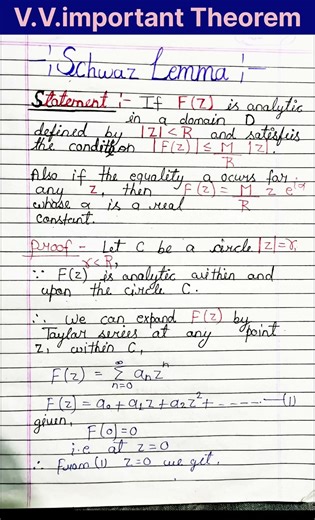 V.V.important Theorem
-¦- Schwaz Lemma -¦-
Statement :- If F(Z) is analytic
in a domain D
defined by |Z|<R and satisfiis
the condition |F(Z)| ≤ M/R |Z|.
Also if the equality a occurs for
any z, then F(Z) = M/R z e^iα
whose α is a real
constant.
Proof - Let C be a circle |z|=r,
r<R,
∵ F(Z) is analytic within and
upon the circle C.
∴ We can expand F(Z) by
Taylar series at any point
z, within C,
F(Z) = ∞Σn=0 anz^n
F(Z) = a0 + a1z + a2z^2 + ----- —(1)
given,
F(0) = 0
i.e at z=0
∴ From (1) z=0 we get,